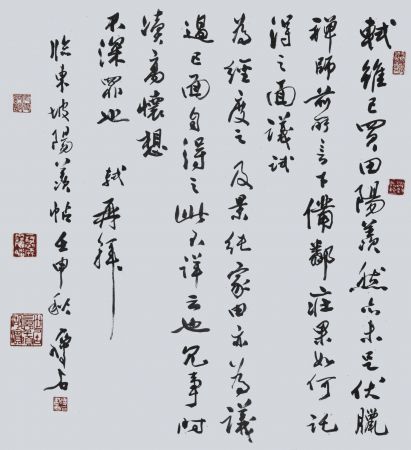 軾雖已買田陽羨然亦未足伏臘
禪師前所言下備鄰莊果如何託
得之面議試
為經度之及景純家田亦為議
過已面自得之此不詳云也冗事時
瀆高懷想
不深罪也 軾再拜
臨東坡陽羨帖壬申秋